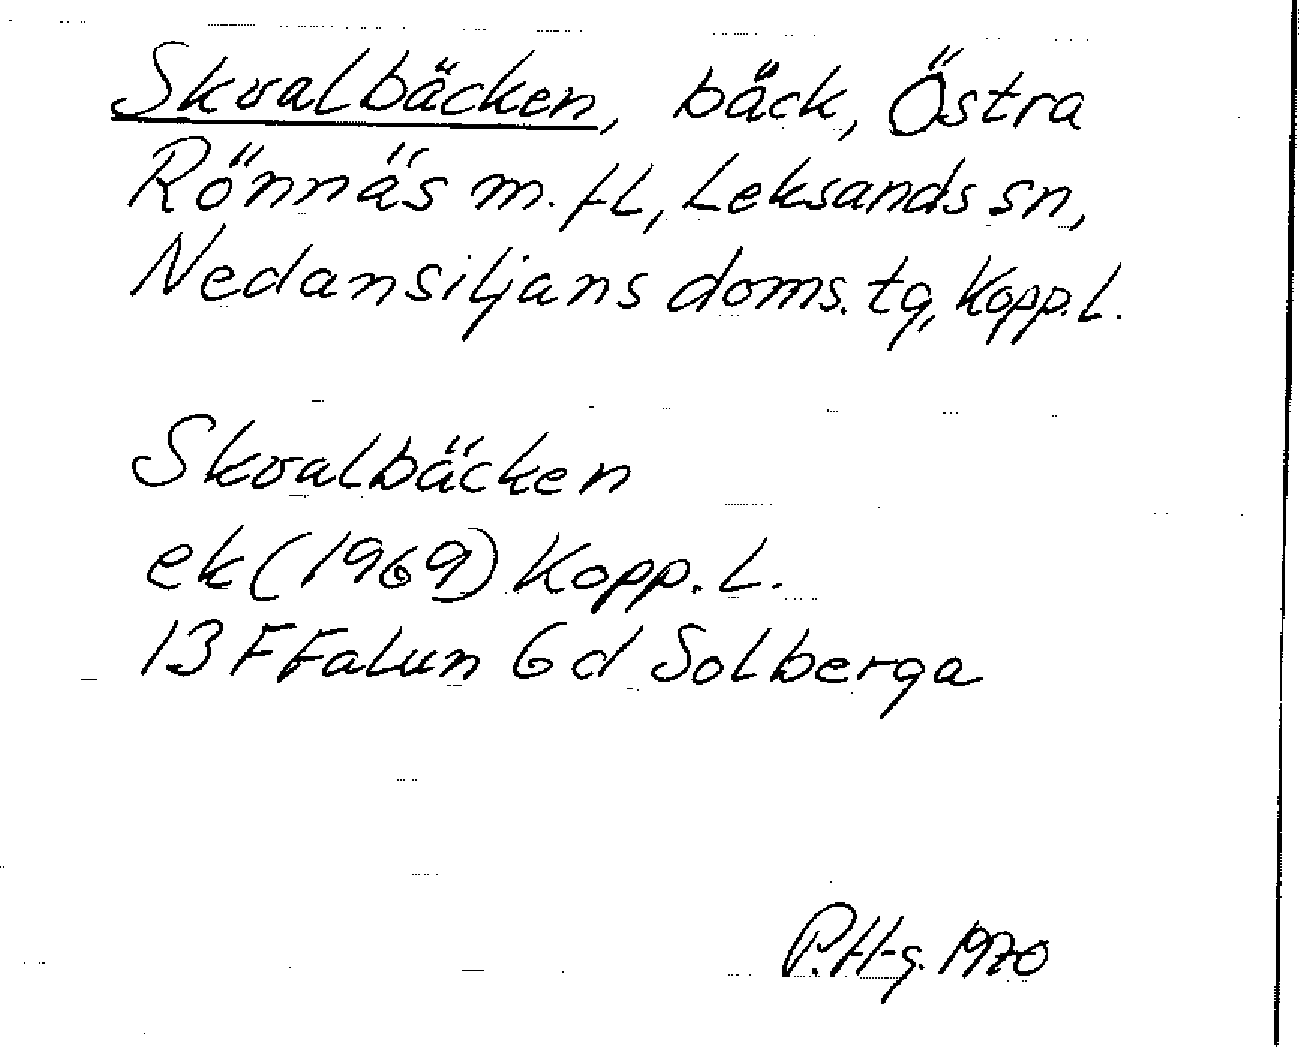 Skvalbäcken, bäck, Östra
Rönnäs m. fl, Leksands sn,
Nedansiljans doms. tg, Kopp. L.
Skvalbäcken
ek (1969) Kopp. L.
13 F Falun 6 d Solberga
P. H-g. 1970